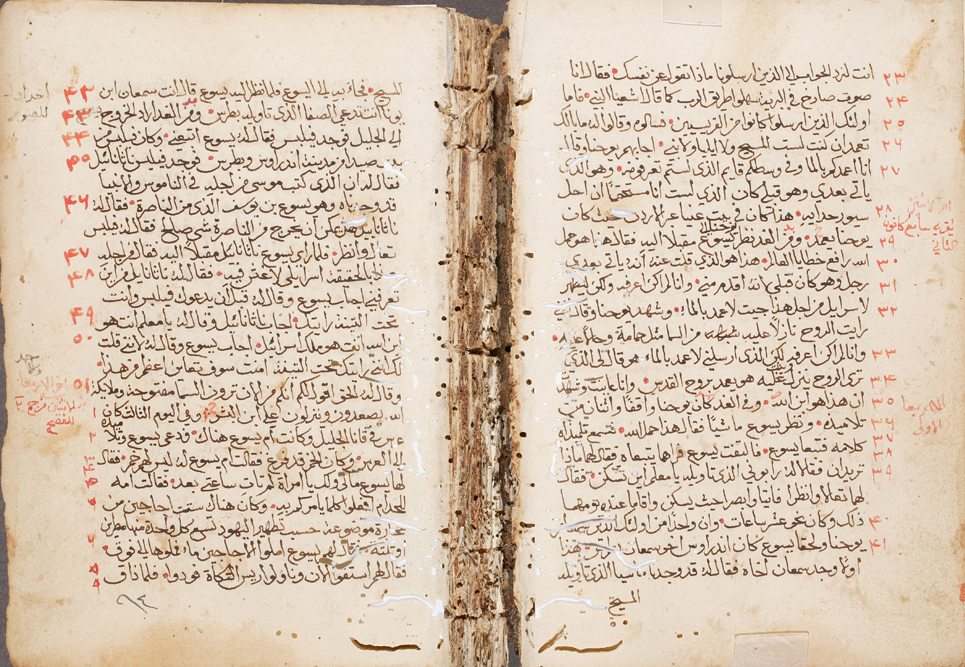 انت لنرد الجواب الى الذين ارسلونا ماذا تقول عن نفسك فقال انا
صوت صارخ في البرية سهلوا طريق الرب كما قال اشعيا النبي فاما
اوليك الذين ارسلوا كانوا من الفريسيين فسالوه وقالوا له ما بالك
تعمد ان كنت لست المسيح ولا ايليا ولا النبي اجابهم يوحنا وقال
انا اعمد بالماء وفي وسطكم قايم الذي لستم تعرفونه وهو الذي
ياتي بعدي وهو قبلي كان الذي لست انا مستحقا ان احل
سيور حذايه هذا كان في بيت عنيا عبر الاردن حيث كان
يوحنا يعمد ومن الغد نظر يسوع مقبلا اليه فقال هذا هو حمل
الله رافع خطايا العالم هذا هو الذي قلت عنه انه ياتي بعدي
رجل وهو كان قبلي لانه اقدم مني وانا لم اكن اعرفه ولكن ليظهر
لاسراييل من اجل هذا جيت لاعمد بالماء وشهد يوحنا وقال اني
رايت الروح نازلا عليه من السما مثل حمامة وحل عليه
وانا لم اكن اعرفه لكن الذي ارسلني لاعمد بالماء هو قال لي الذي
ترى الروح ينزل عليه هو يعمد بروح القدس وانا عاينت وشهدت
ان هذا هو ابن الله وفي الغد كان يوحنا واقفا واثنان من
تلاميذه ونظر يسوع ماشيا فقال هذا حمل الله فسمع تلميذاه
كلامه فتبعا يسوع فالتفت يسوع فراهما يتبعاه فقال لهما ماذا
تريدان فقالا له رابوني الذي تاويله يا معلم اين تسكن فقال
لهما تعالا وانظرا فاتيا وابصرا حيث يسكن واقاما عنده يومهما
ذلك وكان نحو عشر ساعات وان واحدا من اوليك الذين سمعا من
يوحنا ولحقا يسوع كان اندراوس اخو سمعان وان هذا
اولا وجد سمعان اخاه فقال له قد وجدنا ماسيا الذي تاويله
المسيح
للمسيح فجاء به الى يسوع فلما نظر اليه يسوع قال انت سمعان ابن
يونا انت تدعى الصفا الذي تاويله بطرس ومن الغد اراد الخروج
الى الجليل فوجد فيلبس فقال له يسوع اتبعني وكان فيلبس من
بيت صيدا من مدينة اندراوس وبطرس فوجد فيلبس ناثانائيل
فقال له ان الذي كتب موسى من اجله في الناموس والانبيا
قد وجدناه وهو يسوع بن يوسف الذي من الناصرة فقال له
ناثانائيل هل يمكن ان يخرج من الناصرة شي صالح فقال له فيلبس
تعال وانظر فلما راى يسوع ناثانائيل مقبلا اليه قال من اجله
هذا بالحقيقة اسرائيلي لا غش فيه فقال له ناثانائيل من اين
تعرفني اجاب يسوع وقال له قبل ان يدعوك فيلبس وانت
تحت التينة رايتك اجاب ناثانائيل وقال له يا معلم انت هو
ابن الله انت هو ملك اسرائيل اجاب يسوع وقال له لاني قلت
لك اني رايتك تحت التينة امنت سوف تعاين اعظم من هذا
وقال له الحق الحق اقول لكم انكم من الان ترون السما مفتوحة وملايكة
الله يصعدون وينزلون على ابن البشر وفي اليوم الثالث كان
عرس في قانا الجليل وكانت ام يسوع هناك فدعي يسوع وتلاميذه
الى العرس وكان الخمر قد فرغ فقالت ام يسوع له ليس لهم خمر فقال
لها يسوع ما لي ولك يا امراة لم تات ساعتي بعد فقالت امه
للخدام افعلوا كلما يامركم به وكان هناك ست اجاجين من
حجارة موضوعة حسب تطهير اليهود تسع كل واحدة منها مطرين
او ثلثة فقال لهم يسوع املوا الاجاجين ماء فملوها الى فوق
فقال لهم استقوا الان وناولوا ريس المتكاة فودوا فلما ذاق